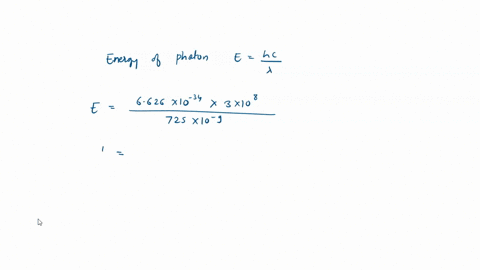 Energy of photon E = hc/λ
E = 6.626 × 10⁻³⁴ × 3 × 10⁸ / 725 × 10⁻⁹
' =